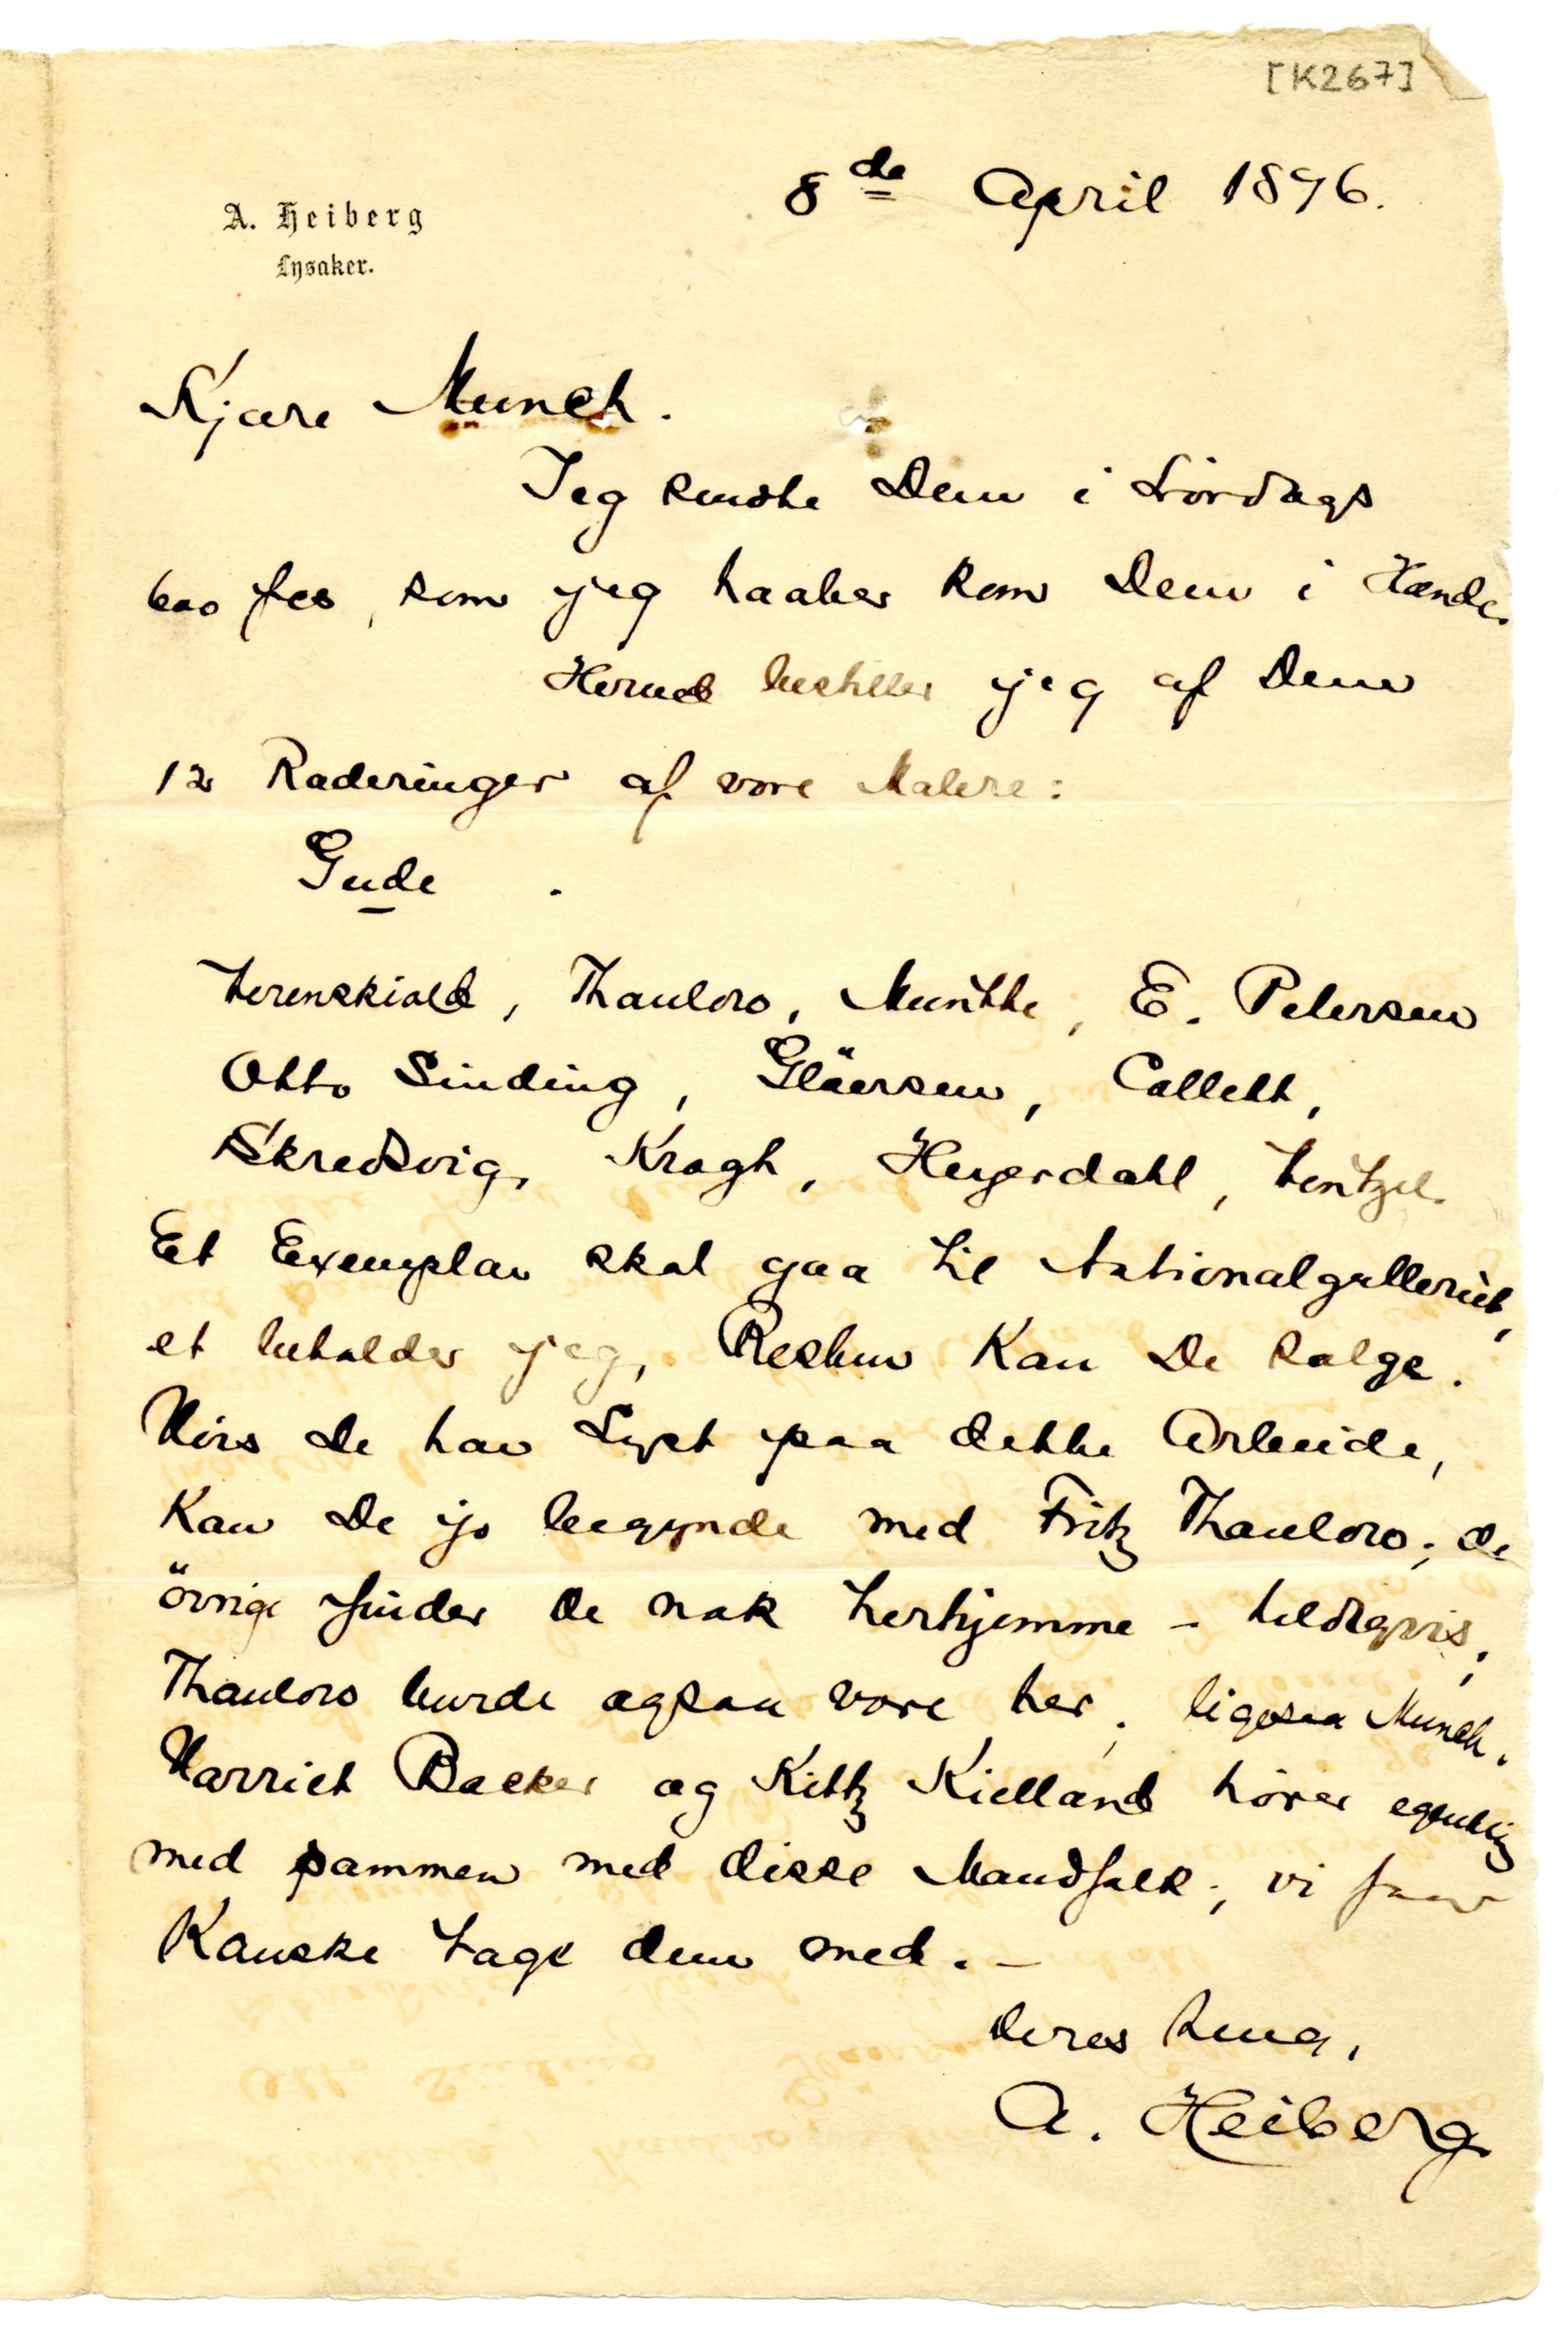 [K267]
8de April 1896.
A. Heiberg
Lysaker.
Kjære Munch.
Jeg sendte Dem i Lördags
600 fcs, som jeg haaber kom Dem i Hænde.
Hermed bestiller jeg af Dem
12 Raderinger af vore Malere:
Gude.
Werenskiold, Thaulow, Munthe, E. Petersen
Otto Sinding, Glöersen, Collett,
Skredsvig, Krogh, Heyerdahl, Wentzel.
Et Exemplar skal gaa til Nationalgalleriet,
et beholder jeg, Resten kan De sælge.
Hvis De har Lyst paa dette Arbeide,
kan De jo begynde med Fritz Thaulow; de
övrige finder De nok herhjemme – heldigvis;
Thaulow burde ogsaa være her, ligesaa Munch.
Harriet Backer og Kitty Kielland hører egentlig
med sammen med disse Mandfolk; vi faar
Kanske tage dem med. –
Deres heng.
A. Heiberg